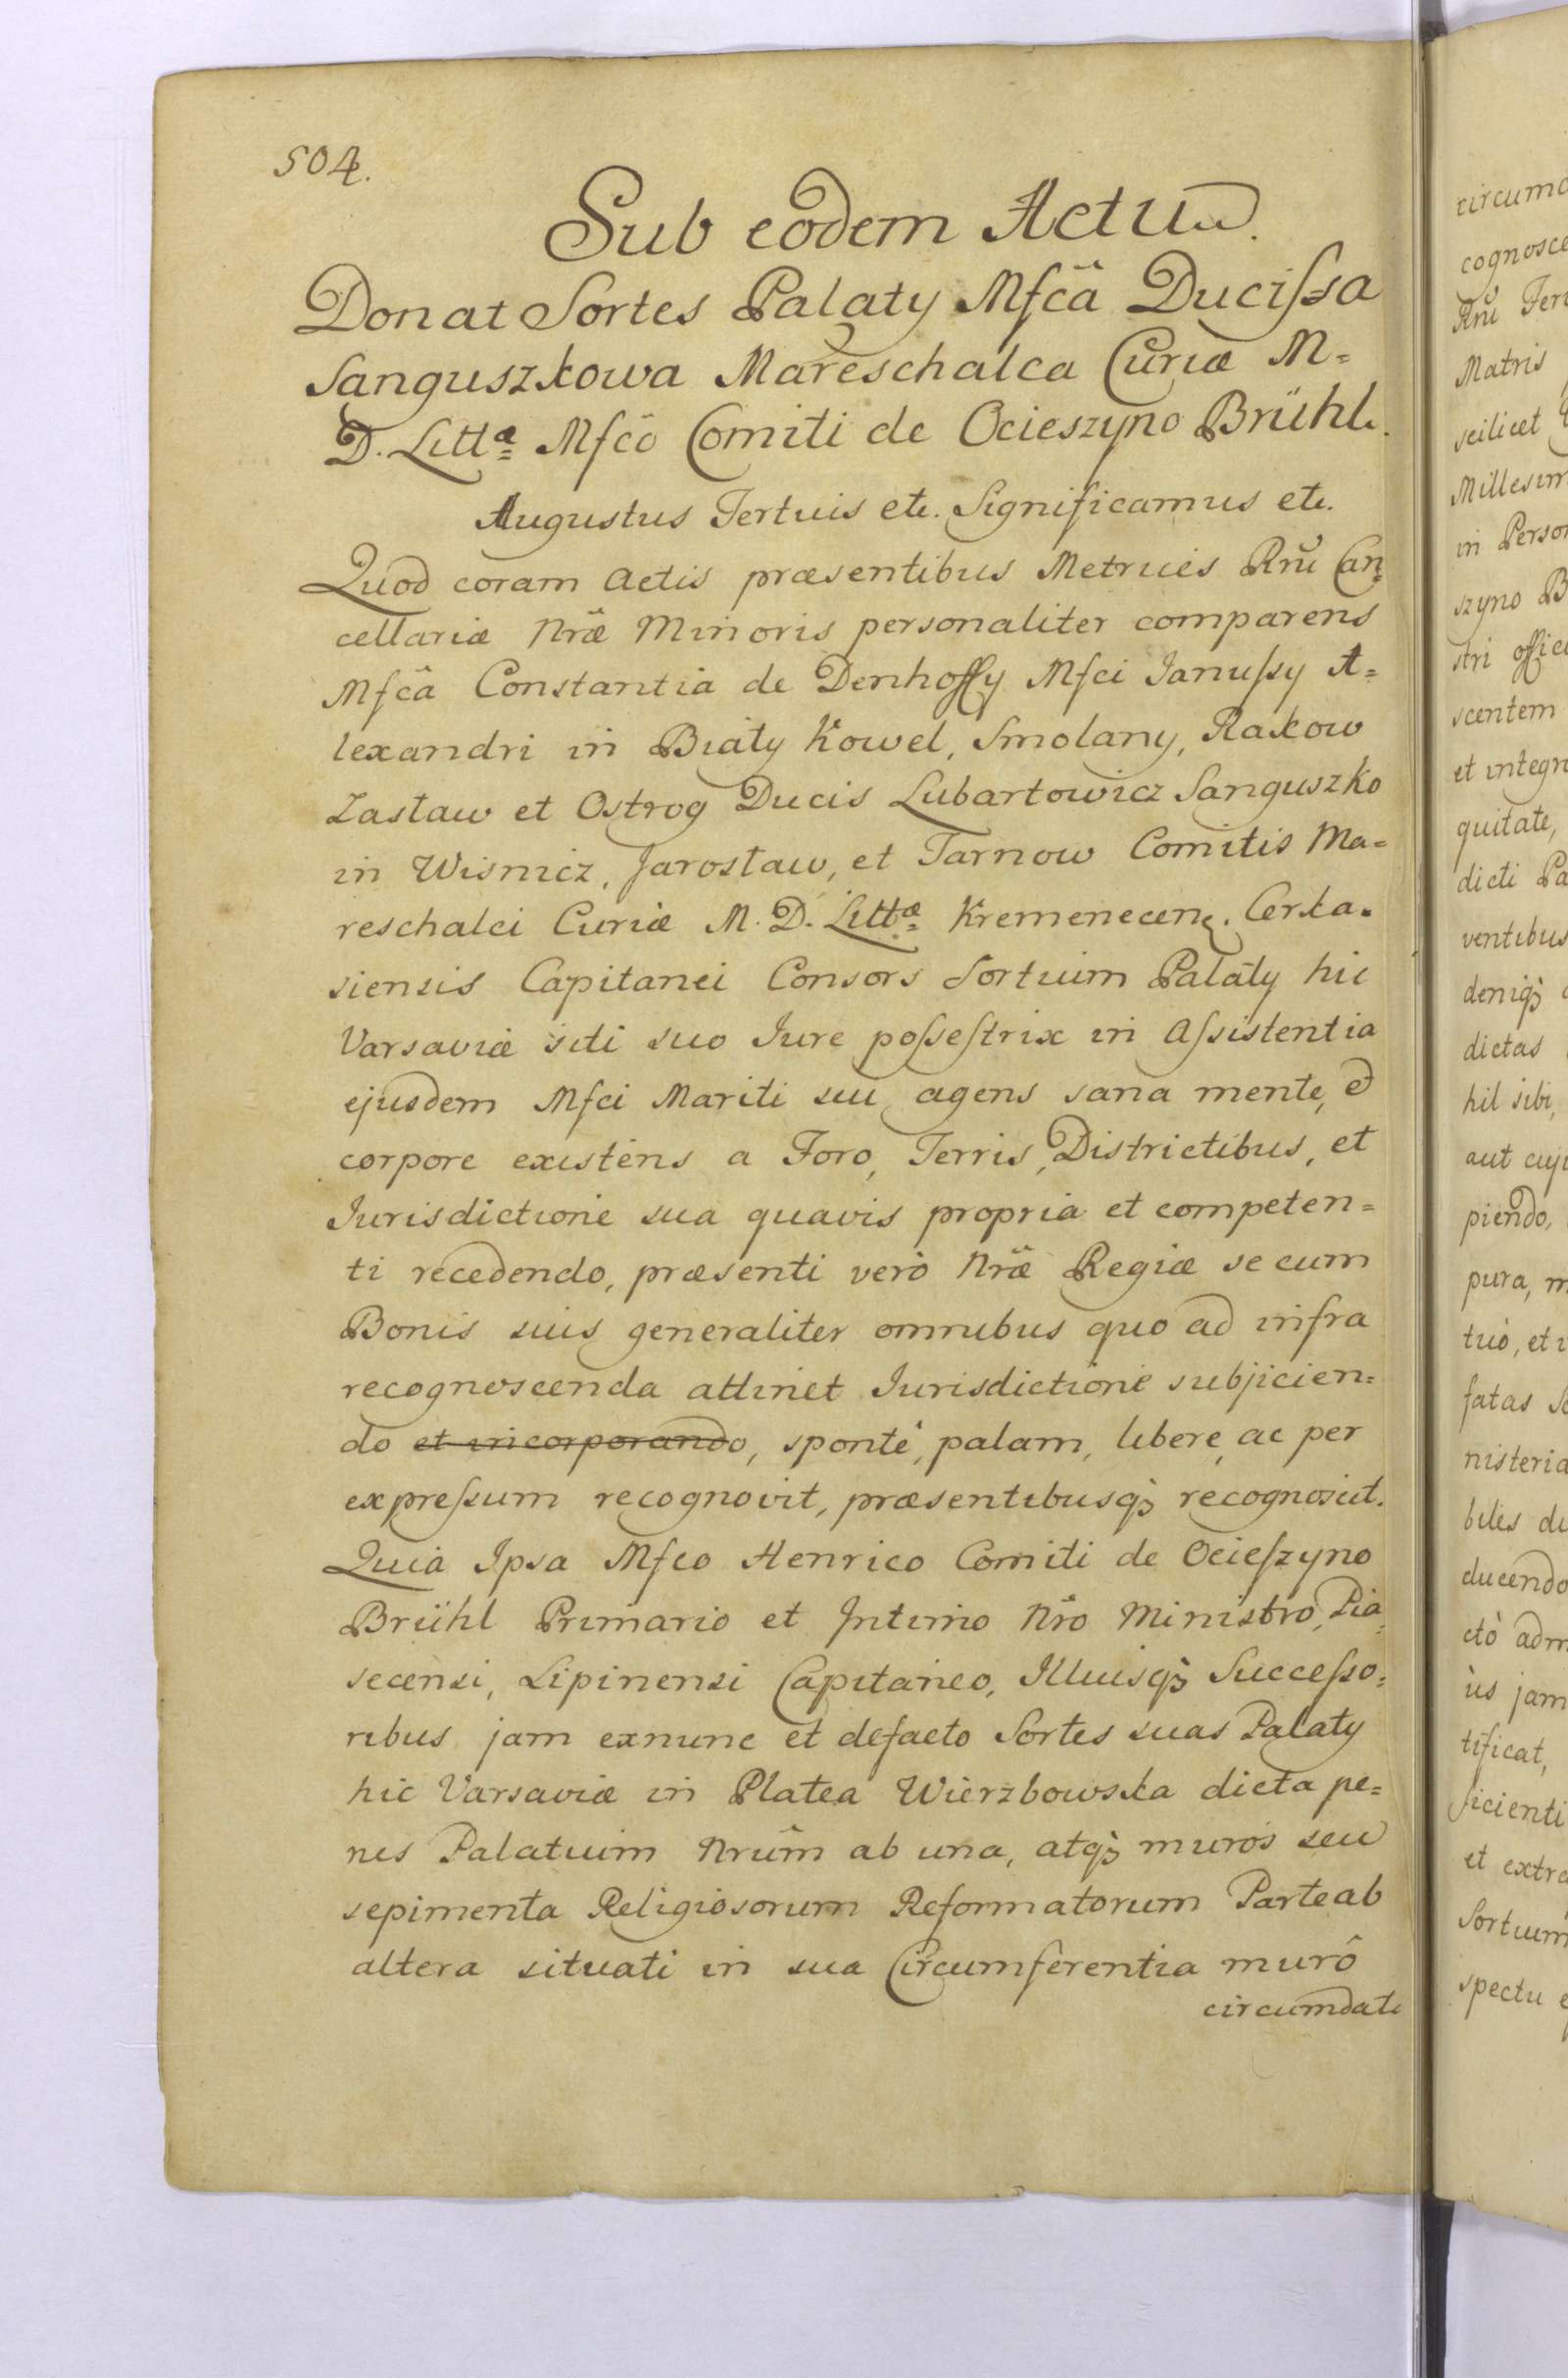 504.
Sub eodem Actu.
Donat Sortes Palaty Mfcâ Ducifsa
Sanguszkowa Mareschalca Curiæ M=
D. Littæ Mfcô Comiti de Ocieszyno Brühl.
Augustus Tertius etc. Significamus etc.
Quod coram Actis præsentibus Metrices Rnĭ Can=
cellariæ Nræ Minoris personaliter comparens
Mfcâ Constantia de Denhoffy Mfci Ianufsy A=
lexandri in Biały Kowel, Smolany, Rakow
Zasław et Ostrog Ducis Lubartowicz Sanguszko
in Wisnicz, Jarosław, et Tarnow Comitis Ma=
reschalci Curiæ M. D. Littæ Kremenecen. Cerka=
siensis Capitanei Consors Sortium Palaty hic
Varsaviæ siti suo Iure pofsefstrix in Afsistentia
ejusdem Mfci Mariti sui agens sana mente, et
corpore existens a Foro, Terris, Districtibus, et
Iurisdictione sua quavis propria et competen=
ti recedendo, præsenti verò Nræ Regiæ se cum
Bonis suis generaliter omnibus quo ad infra
recognoscenda attinet Iurisdictione subjicien=
do et incorporando, spontè, palam, libere, ac per
exprefsum recognovit, præsentibusq; recognoscit.
Quia Ipsa Mfco Henrico Comiti de Ociefzyno
Brühl Primario et Intimo Nrô Ministro, Pia=
secensi, Lipinensi Capitaneo, Illiusq; Succefso=
ribus jam exnunc et defacto Sortes suas Palaty
hic Varsaviæ in Platea Wierzbowska dicta pe=
nes Palatium Nrûm ab una, atq; muros seu
sepimenta Religiosorum Reformatorum Parte ab
altera situati in sua Circumferentia murô
circumdati
circum
cognosce
Rnĭ Ter
Matris
scilicet
Millesim
in Person
szyno B
stri offici
scentem
et integr
quitate,
dicti Pa
ventibus
deniq;
dictas
hil sibi,
aut cuju
piendo,
pura, m
tuò, et i
fatas So
nisteria
biles di
ducendo
ctò adm
ùs jam
tificat,
ficienti
et extra
Sortium
spectu e